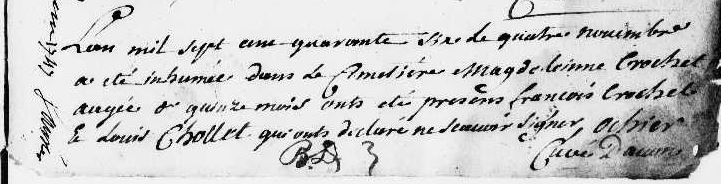 Lan mil sept cent quarante six le quatre novembre
a eté inhumée dans le Cimetiére Magdeleinne Crochet
augée de quinze mois onts eté presens francois Crochet
& Louis Chollet qui onts declaré ne scauoir signer ochier
Curé Dauon